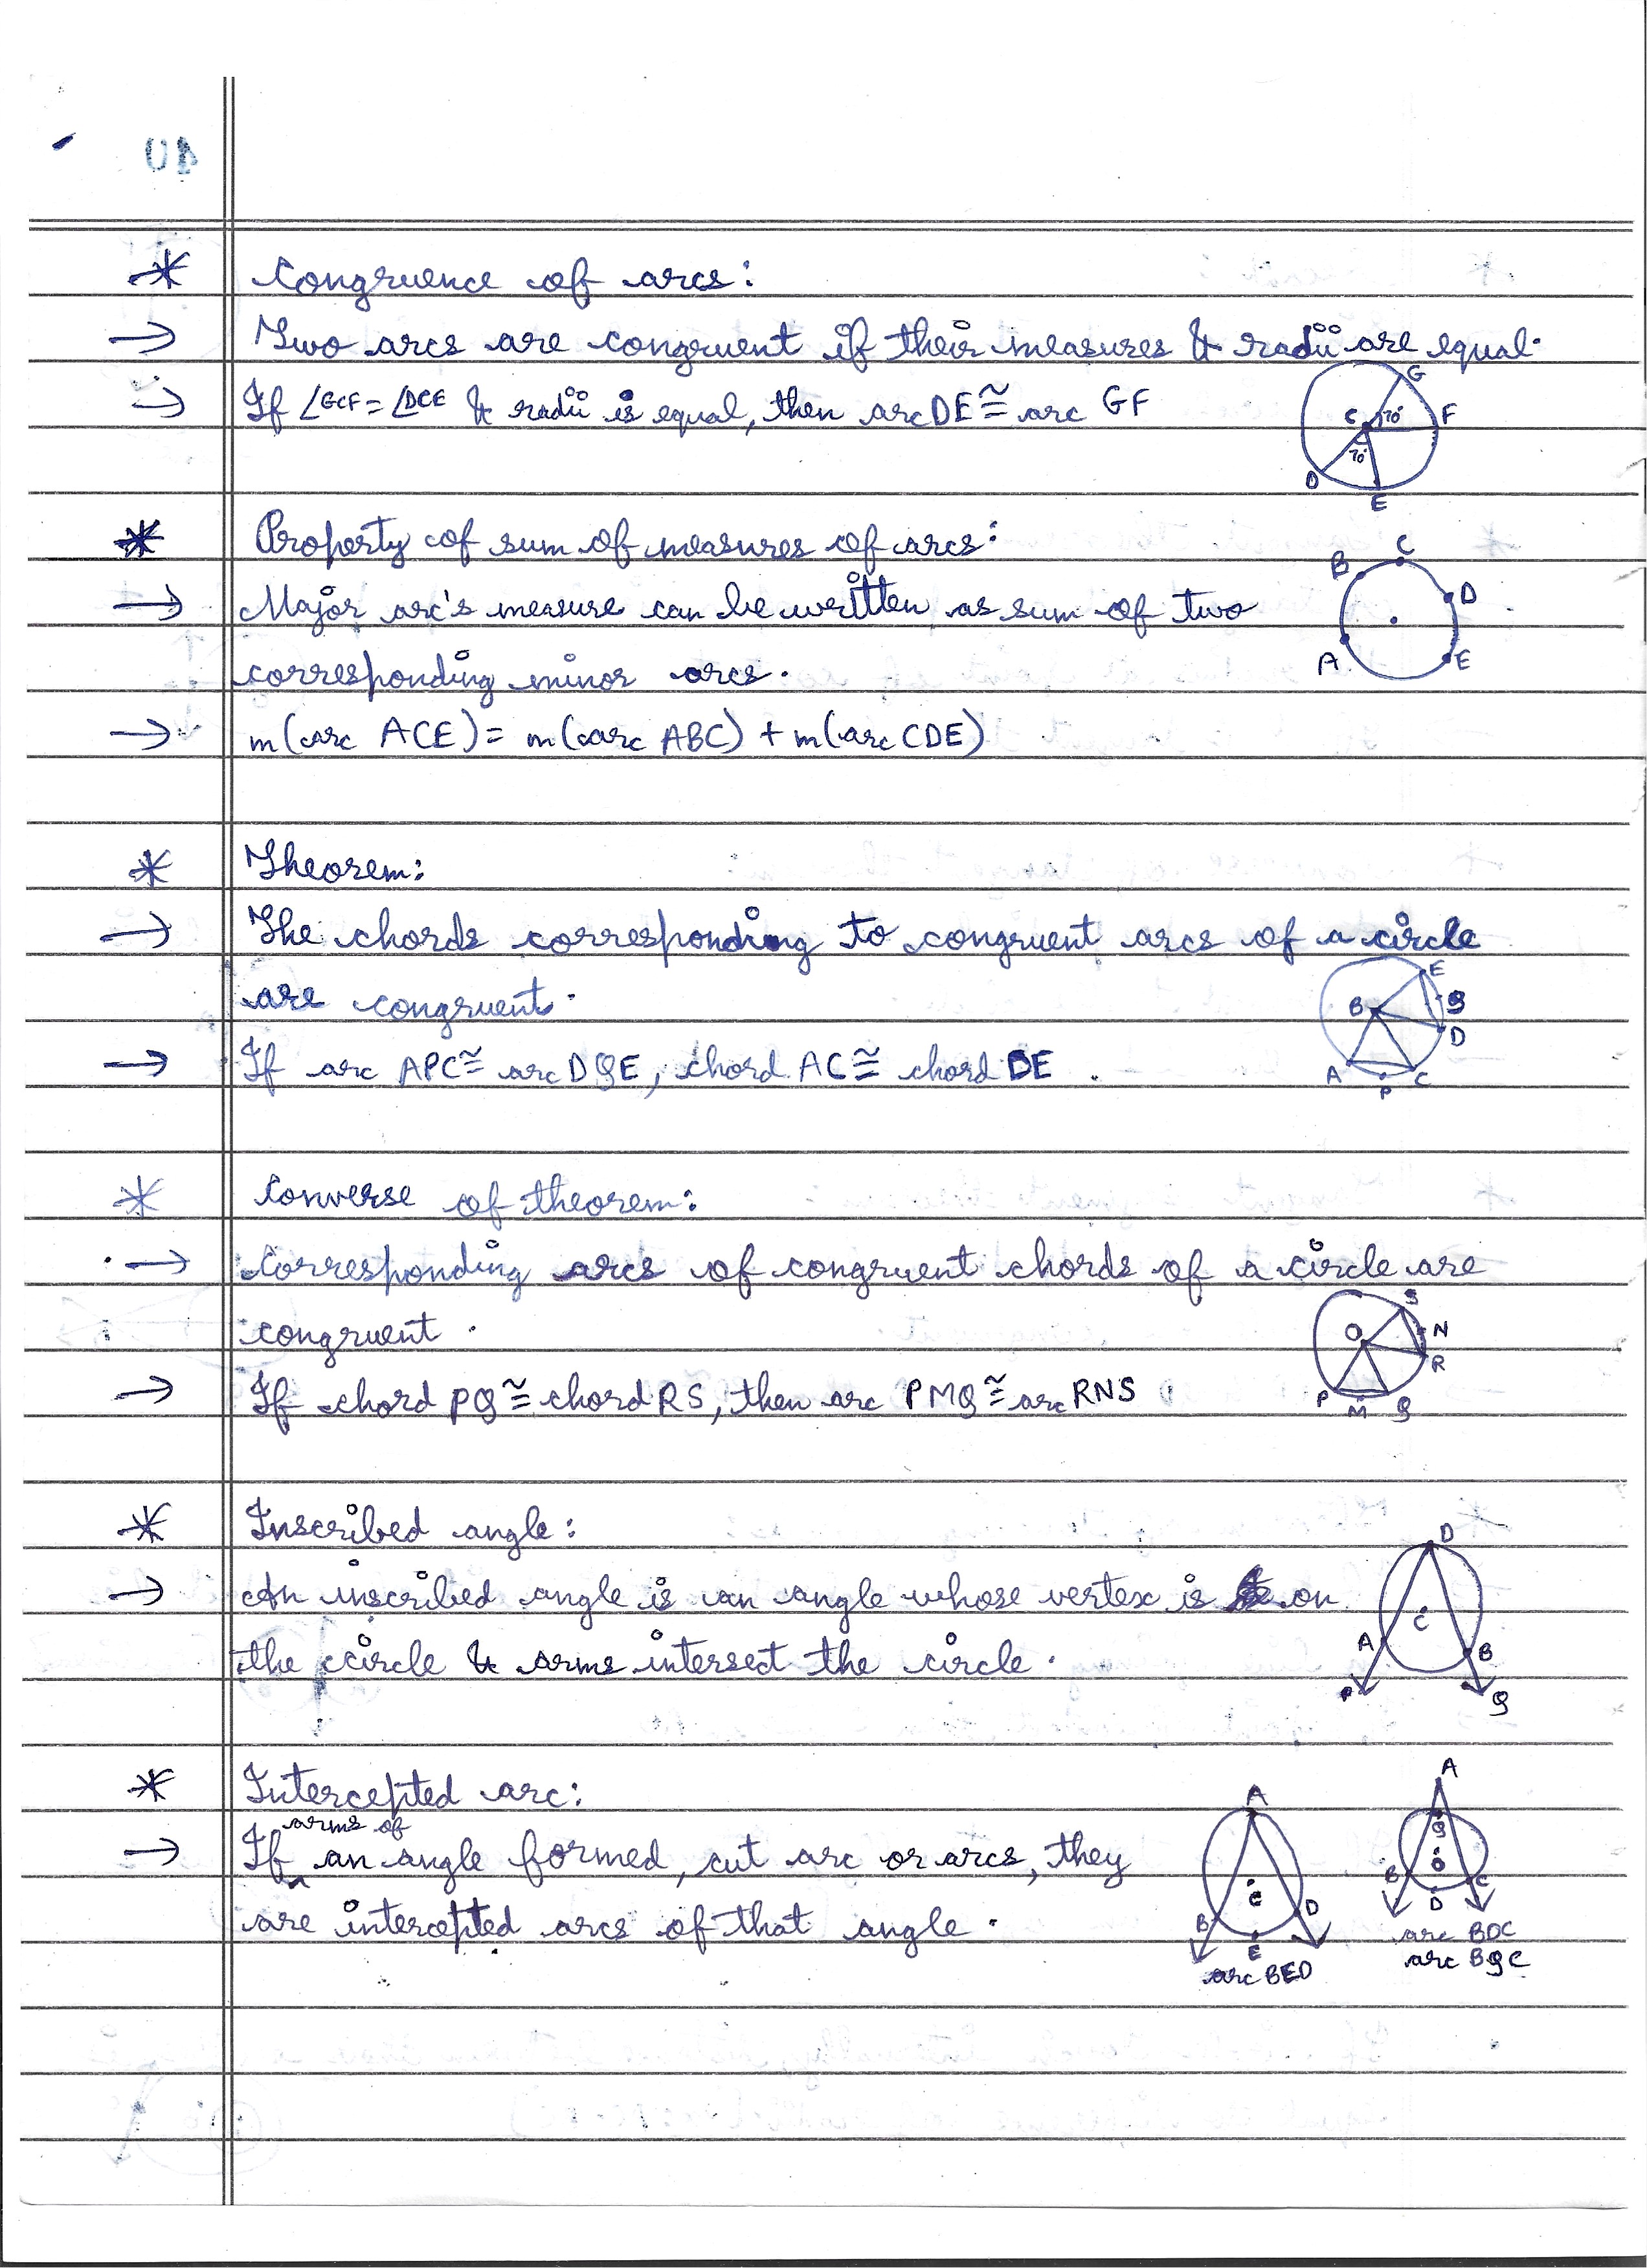 * Congruence of arcs:
→ Two arcs are congruent if their measures & radii are equal.
→ If ∠GCF = ∠DCE & radii is equal, then arc DE ≅ arc GF
G
C 70° F
70°
D
E
* Property of sum of measures of arcs:
B C
→ Major arc's measure can be written as sum of two
D
corresponding minor arcs.
A E
→ m(arc ACE) = m(arc ABC) + m(arc CDE)
* Theorem:
→ The chords corresponding to congruent arcs of a circle
are congruent.
E
B Q
D
→ If arc APC ≅ arc DQE, chord AC ≅ chord DE .
A P C
* Converse of theorem:
→ Corresponding arcs of congruent chords of a circle are
congruent .
S
O N
R
→ If chord PQ ≅ chord RS, then arc PMQ ≅ arc RNS
P M Q
* Inscribed angle:
D
→ An inscribed angle is an angle whose vertex is on
C
the circle & arms intersect the circle .
A B
P Q
* Intercepted arc:
A A
arms of
→ If an angle formed, cut arc or arcs, they
Q
O
C B C
D
are intercepted arcs of that angle .
B D
E
arc BED
arc BDC
arc BQC